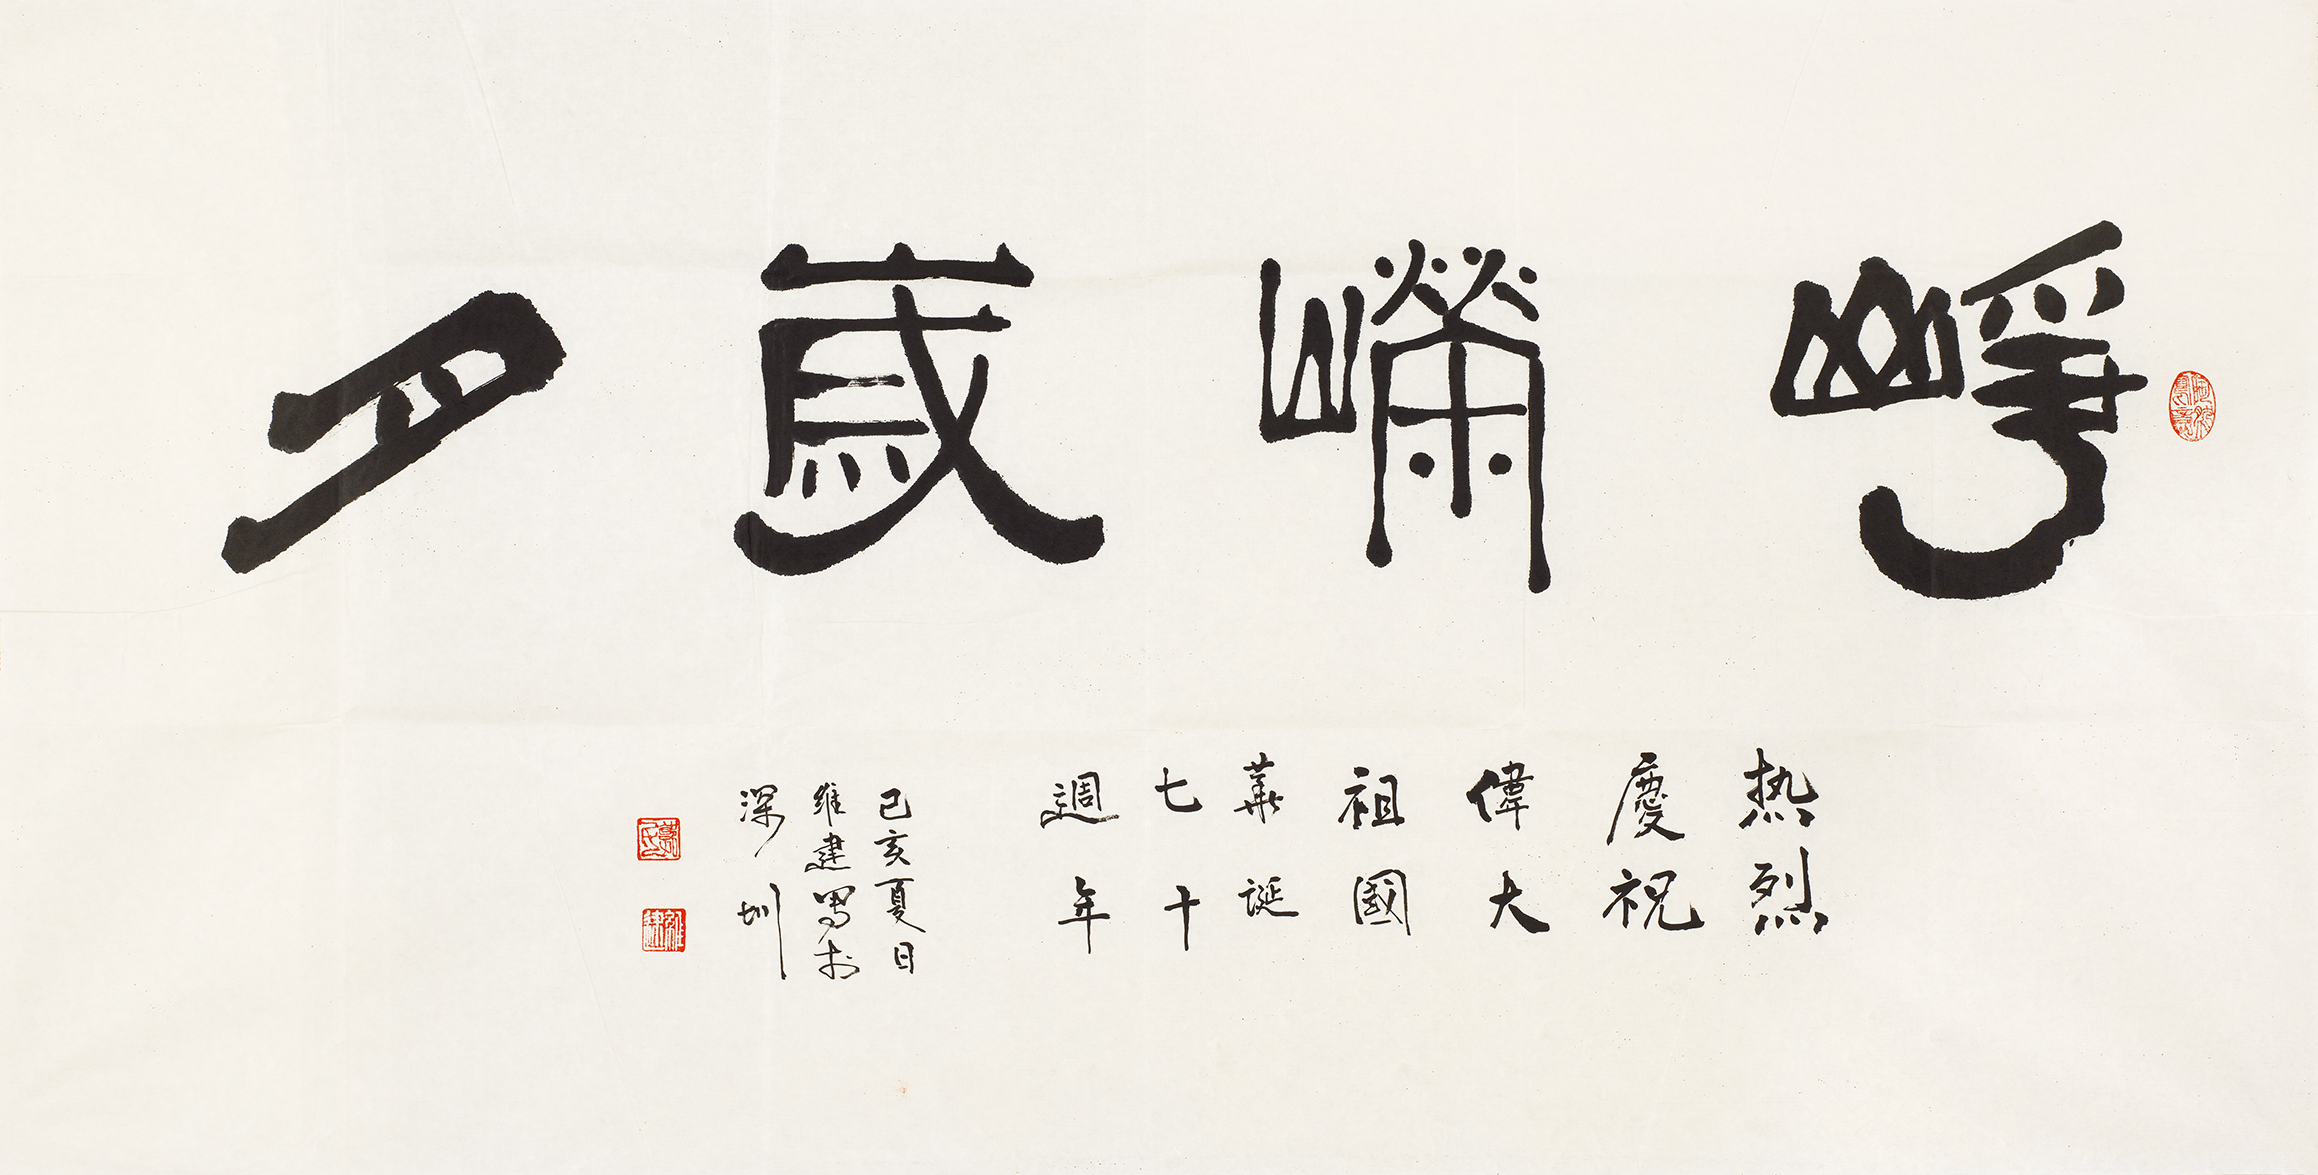 崢嶸歲月
热烈
慶祝
偉大
祖國
華誕
七十
週年
己亥夏日
維建写於
深圳